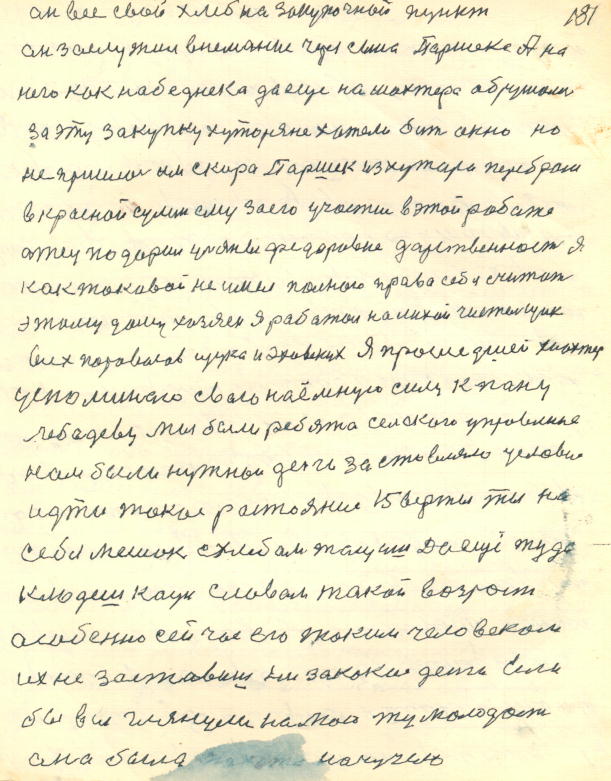 181
он все свой хлеб на закупочной пункт
он заслужил внемание через сына Паршека А на
него как на беднека да еще на шахтера обрушали
за эту закупку хуторяне хотели бит окно но
не пришлос им скора Паршек из хутара перебрали
в красной сулин ему за его участие в этой рабаже
отец подарил ульяны федоровне дарственност я
как таковой не имел полного права себя считат
этому дому хозяен я работал на лихой чистельщик
всех поровозов щука и эховских Я прошедшей шахтер
успоминаю свою наёмную силу к пану
лебадеву мы были ребята селского управление
нам были нужной денги заставляло условие
идти такое растояние 15 верст ты на
себя мешок схлебам тащиш Да ещё туда
кладеш каун Словам такой возраст
особенно сей час его таким человеком
их не заставиш ни закокие денги Если
бы вы глянули на мою ту молодост
она была на кучею